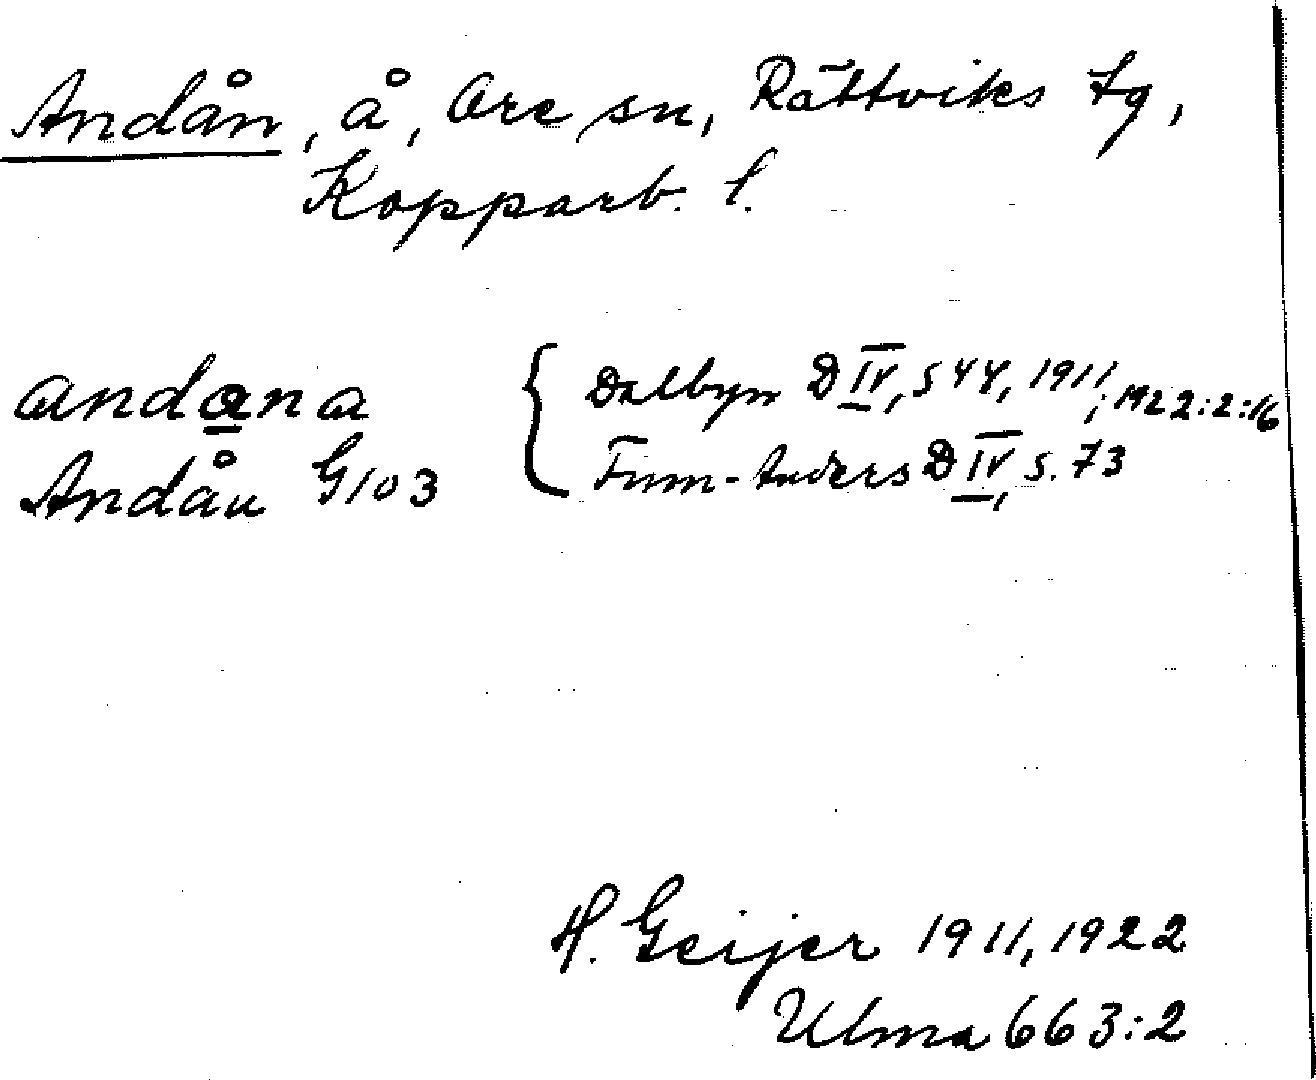 Andån, å, Ore sn, Rättviks tg,
Kopparb. l.
andana { Dalbyn D IV, S 44, 1911; 1922:2:16
Andån G103 Finn-Anders D IV, s. 73
H. Geijer 1911, 1922
Ulma 663:2